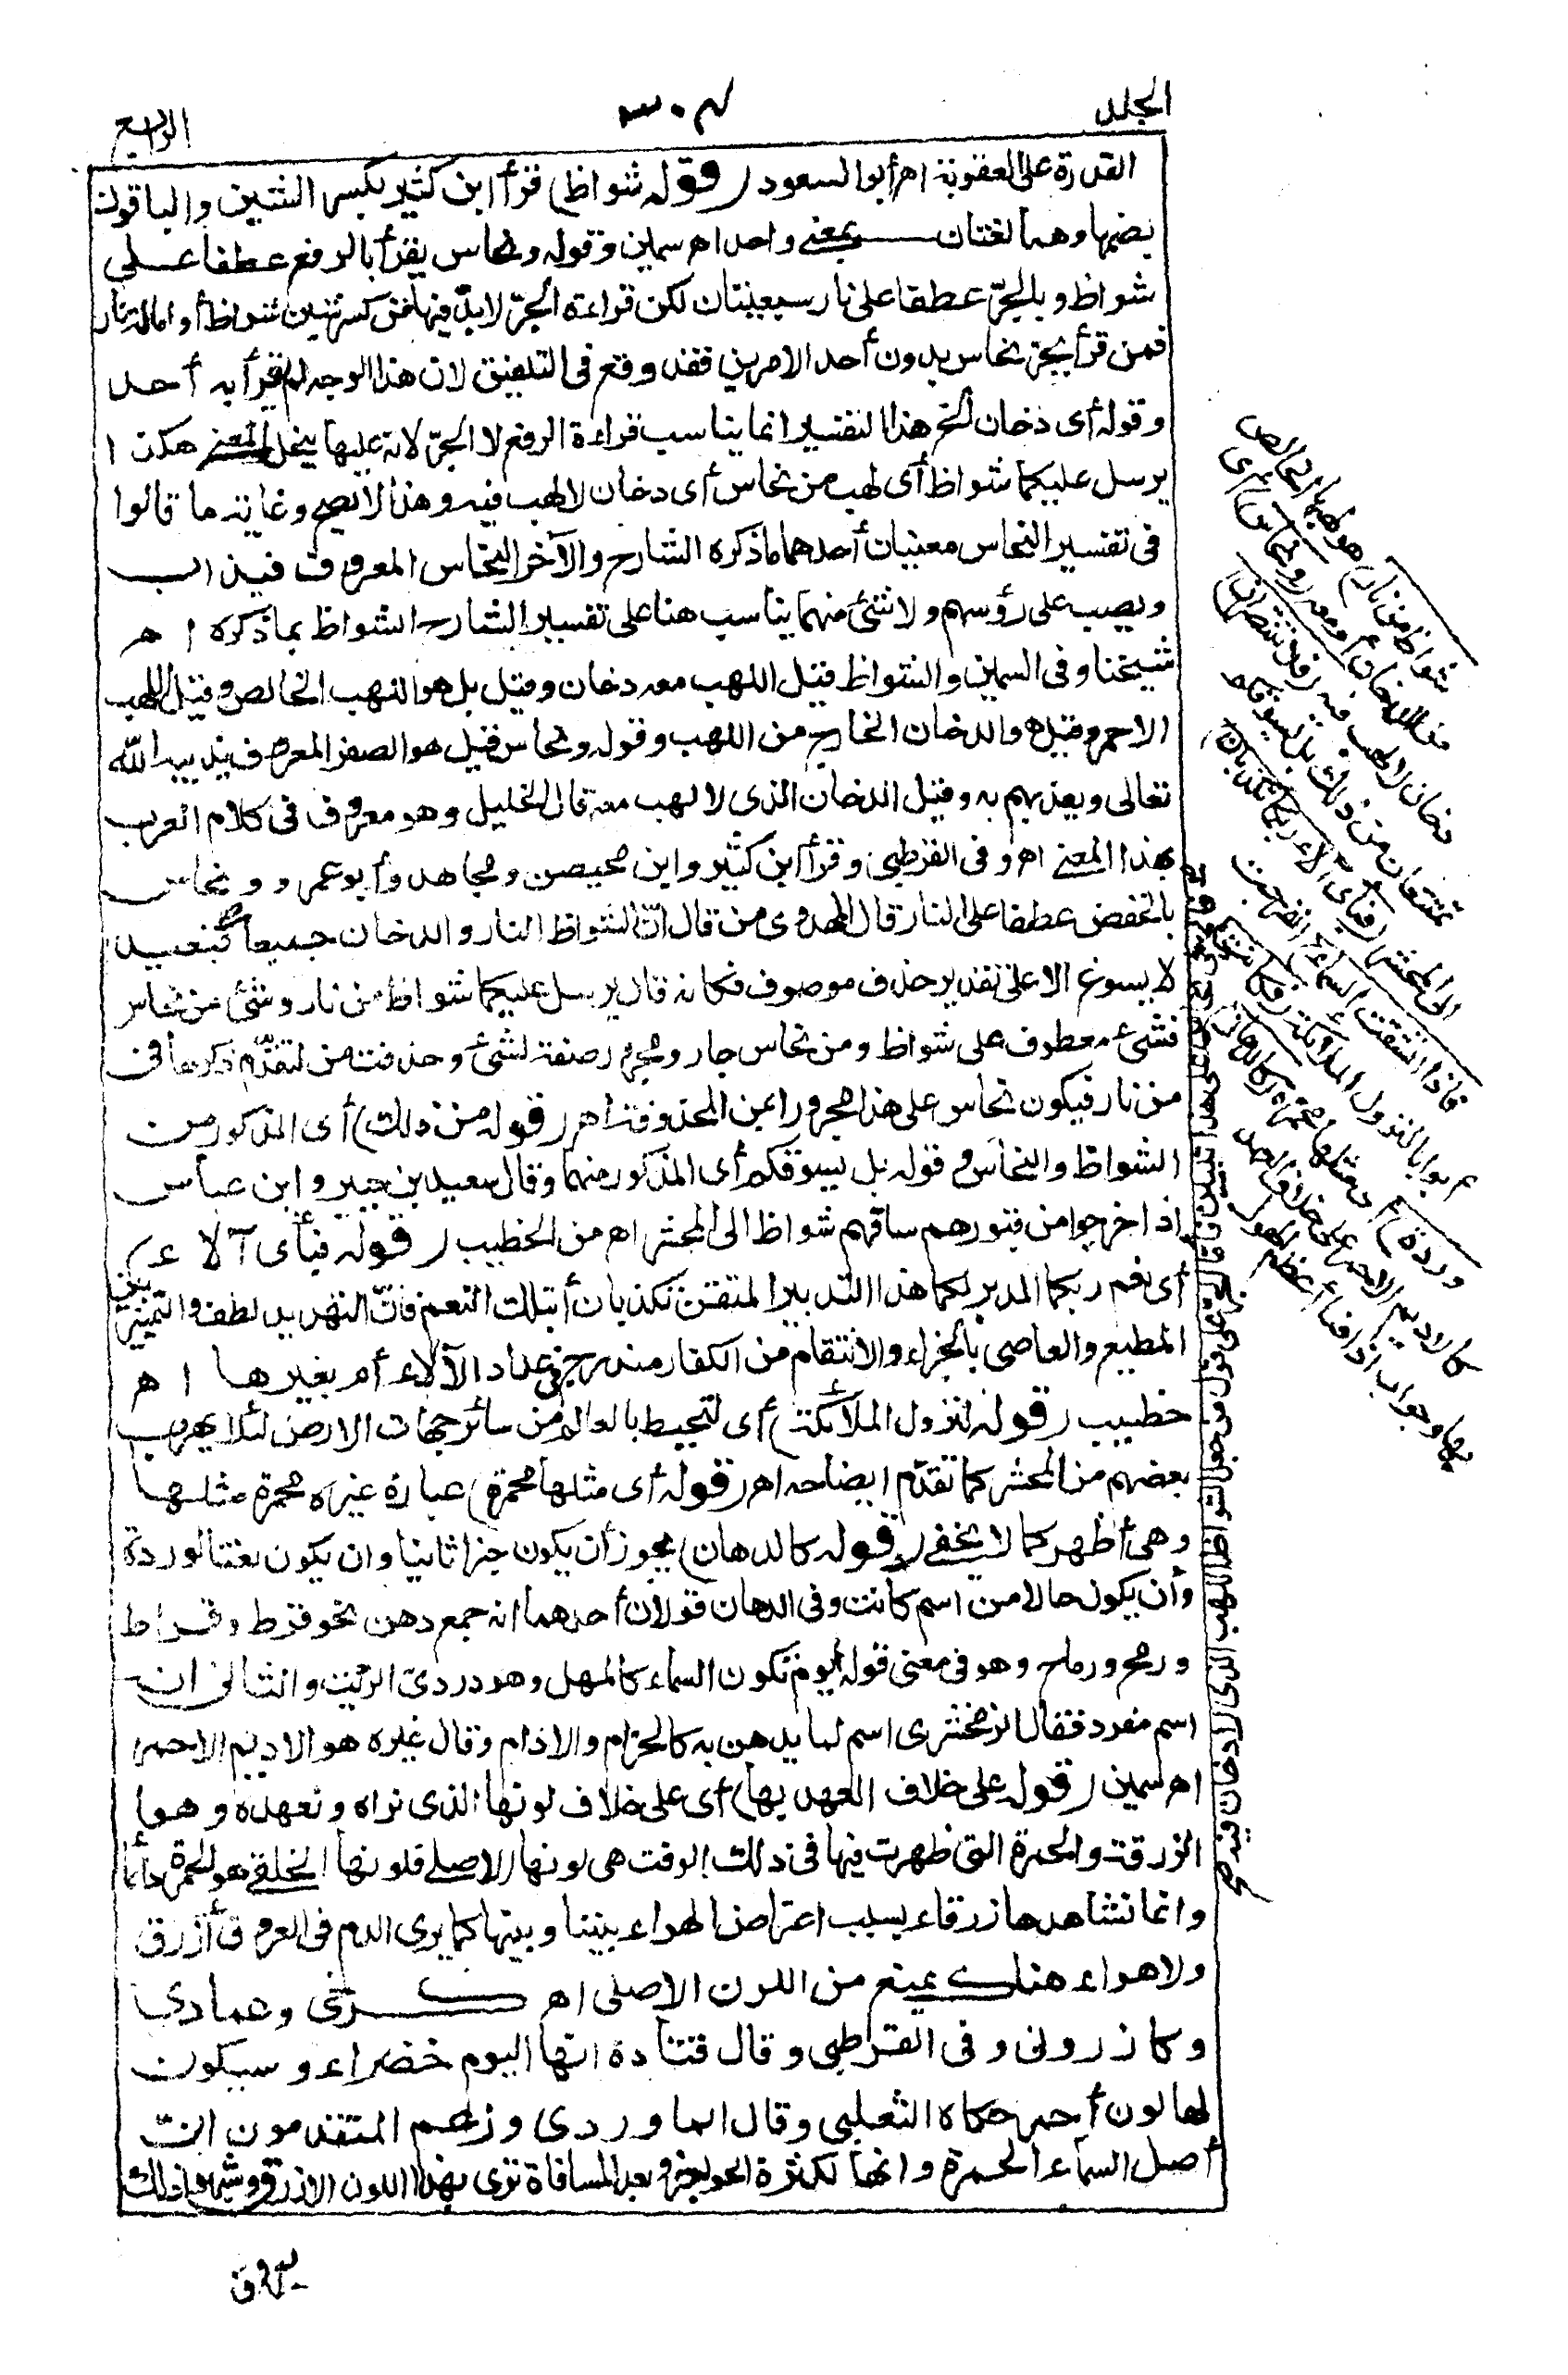 الجلد
٣٠٤
الرابع
القدرة على العقوبة اهر أبو السعود (قوله شواظ) قرأ ابن كثير بكسر الشين والباقون
بضمها وهما لغتان بمعنى واحد اهر سمين وقوله ونحاس يقرأ بالرفع عطفا على
شواظ وبالجرّ عطفا على نار سبعيتان لكن قراءة الجرّ لابدّ فيها من كسر شين شواظ أو امالة نار
فمن قرأ بجرّ نحاس بدون أحد الامرين فقد وقع فى التلفيق لان هذا الوجه لم يقرأ به أحد
وقوله أى دخان الخ هذا التفسير انما يناسب قراءة الرفع لا الجرّ لانه عليها ينحل المعنى هكذا
يرسل عليكما شواظ أى لهب من نحاس أى دخان لا لهب فيه وهذا لا يصح وغاية ما قالوا
فى تفسير النحاس معنيان أحدهما ما ذكره الشارح والآخر النحاس المعروف فيذاب
ويصب على رؤسهم ولا شئ منهما يناسب هنا على تفسير الشارح الشواظ بما ذكره اهر
شيخنا وفى السمين والشواظ قيل اللهب معه دخان وقيل بل هو اللهب الخالص وقيل اللهب
الاحمر وقيل هو الدخان الخارج من اللهب وقوله ونحاس قيل هو الصفر المعروف يذيبه الله
تعالى ويعذبهم به وقيل الدخان الذى لا لهب معه قال الخليل وهو معروف فى كلام العرب
بهذا المعنى اهر وفى القرطبى وقرأ ابن كثير وابن محيصن ومجاهد وأبو عمرو ونحاس
بالخفض عطفا على النار قال المهدوى من قال انّ الشواظ النار والدخان جميعا فبعيد
لا يسوغ الا على تقدير حذف موصوف فكانه قال يرسل عليكما شواظ من نار وشئ من نحاس
فشئ معطوف على شواظ ومن نحاس جار ومجرور صفة لشئ وحذفت من لتقدّم ذكرها فى
من نار فيكون نحاس على هذا مجرورا بمن المحذوفة اهر (قوله من ذلك) أى المذكور من
الشواظ والنحاس وقوله بل يسوقكم أى المذكور منهما وقال سعيد بن جبير وابن عباس
اذا خرجوا من قبورهم ساقهم شواظ الى المحشر اهر من الخطيب (قوله فبأى آلاء)
أى نعم ربكما المدبر لكما هذا التدبير المتقن تكذبان أبتلك النعم فانّ التهديد لطف والتمييز بين
المطيع والعاصى بالجزاء والانتقام من الكفار مندرج فى عداد الآلاء أم بغيرها اهر
خطيب (قوله لنزول الملائكة) أى لتحيط بالعالم من سائر جهات الارض لئلا يهرب
بعضهم من المحشر كما تقدّم ايضاحه اهر (قوله أى مثلها محمرة) عبارة غيره محمرة مثلها
وهى أظهر كما لا يخفى (قوله كالدهان) يجوز أن يكون خبرا ثانيا وان يكون نعتا لوردة
وأن يكون حالا من اسم كانت وفى الدهان قولان أحدهما انه جمع دهن نحو قرط وقراط
ورمح ورماح وهو فى معنى قوله يوم تكون السماء كالمهل وهو دردىّ الزيت والثانى انه
اسم مفرد فقال الزمخشرى اسم لما يدهن به كالحزام والادام وقال غيره هو الاديم الاحمر
اهر سمين (قوله على خلاف العهد بها) أى على خلاف لونها الذى نراه ونعهده وهو
الزرقة والحمرة التى ظهرت فيها فى ذلك الوقت هى لونها الاصلى فلونها الخلقى هو الحمرة دائما
وانما نشاهدها زرقاء بسبب اعتراض الهواء بيننا وبينها كما يرى الدم فى العروق أزرق
ولا هواء هناك يمنع من اللون الاصلى اهر كرخى وعمادى
وكازرونى وفى القرطبى وقال قتادة انها اليوم خضراء وسيكون
لها لون أحمر حكاه الثعلبى وقال الماوردى وزعم المتقدمون انّ
أصل السماء الحمرة وانها لكثرة الحواجز وبعد المسافة ترى بهذا اللون الازرق وشبهوا ذلك
شواظ من نار) هو لهبها الخالص
من الدخان أو معه (ونحاس) أى
دخان لا لهب فيه (فلا تنتصران)
تمتنعان من ذلك بل يسوقكم
الى المحشر (فبأى آلاء ربكما تكذبان
فاذا انشقت السماء) انفرجت
أبوابا لنزول الملائكة (فكانت
وردة) أى مثلها محمرة (كالدهان)
كالاديم الاحمر على خلاف العهد
بها وجواب اذا فما أعظم الهول